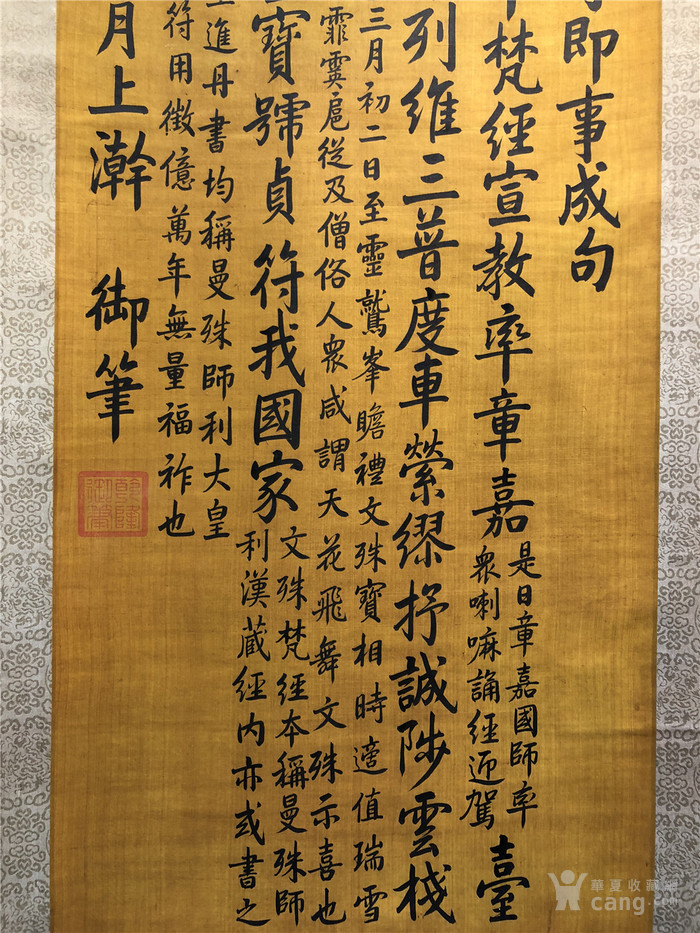 即事成句
梵經宣教率章嘉
是日章嘉國師率
衆喇嘛誦經迎駕
臺
列維三普度車縈繆抒誠陟雲棧
三月初二日至靈鷲峯瞻禮文殊寶相時適值瑞雪
霏霙扈從及僧俗人衆咸謂天花飛舞文殊示喜也
寶號貞符我國家
文殊梵經本稱曼殊師
利漢藏經内亦或書之
進丹書均稱曼殊師利大皇
符用徵億萬年無量福祚也
月上澣 御筆
乾隆御筆
華夏收藏網
cang.com